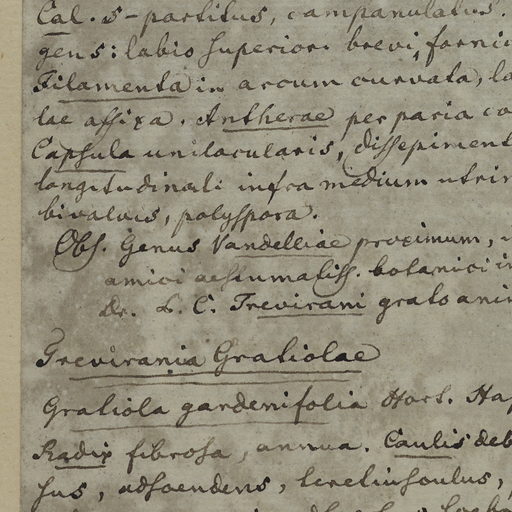 Cal. 5-partitus, campanulatus.
gens: labio superiori brevi, forni
Filamenta in arcum curvata, lo
lae affixa. Antherae per paria co
Capsula unilocularis, dissepiment
longitudinali infra medium utrin
bivalvis, polyspora.
Obs. Genus Vandelliae proximum,
amici aestumatiss. botanici in
Dr. L. C. Trevirani grato ani
Trevirania Gratiolae
Gratiola gardenifolia Hort. Ha
Radix fibrosa, annua. Caulis deb
sus, adscendens, teretiusculus,